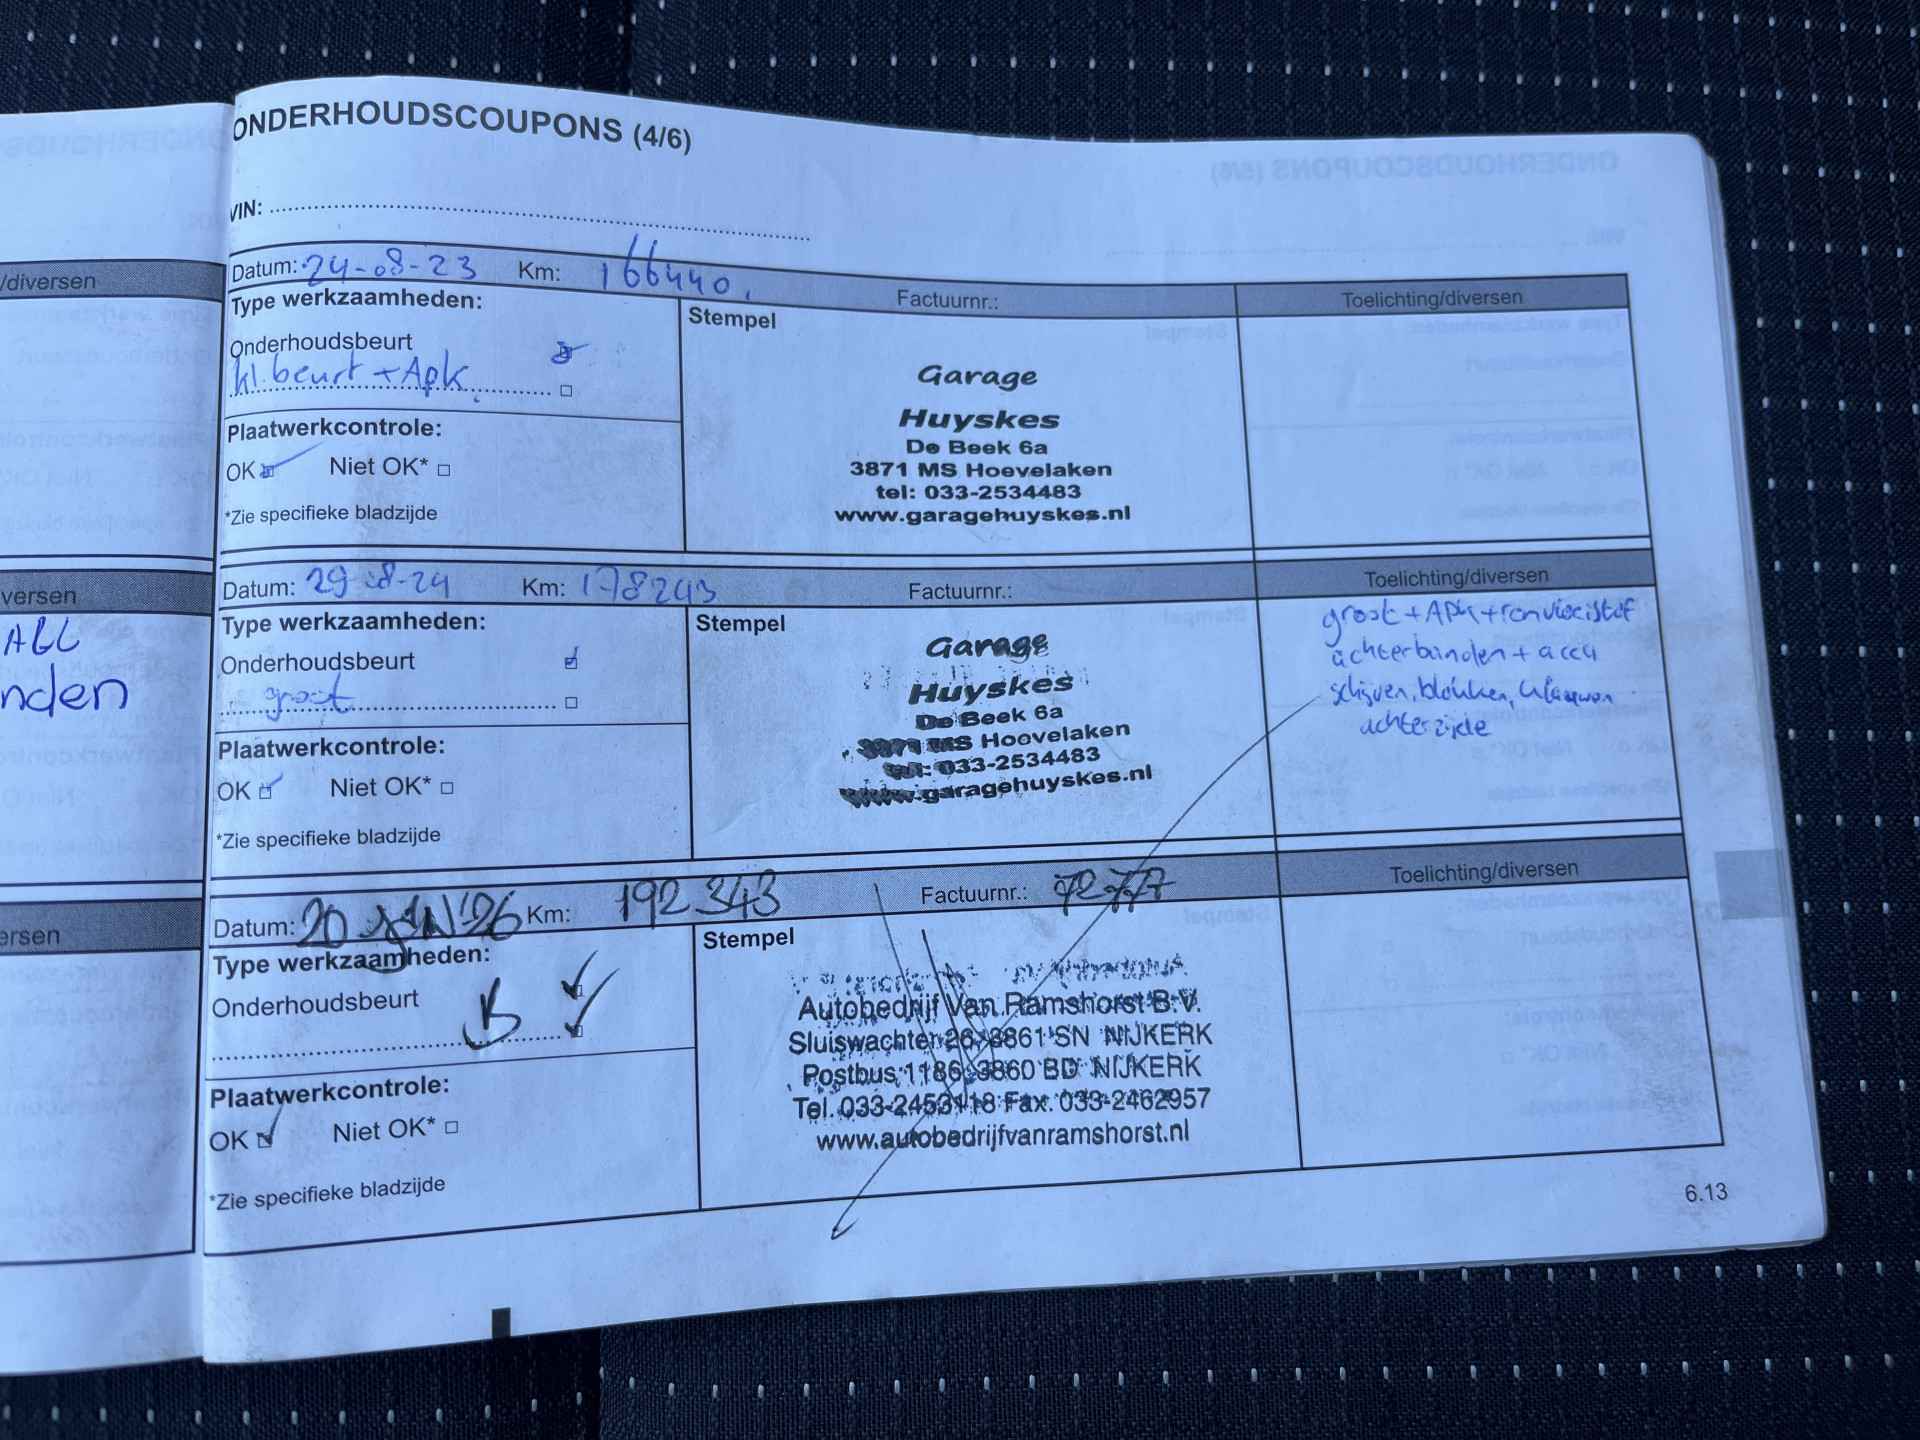 ONDERHOUDSCOUPONS (4/6)
VIN:
Datum: 24-08-23 Km: 166440. Factuurnr.: Toelichting/diversen
Type werkzaamheden:
Onderhoudsbeurt
kl. beurt + Apk
Plaatwerkcontrole:
OK Niet OK*
*Zie specifieke bladzijde
Stempel
Garage
Huyskes
De Beek 6a
3871 MS Hoevelaken
tel: 033-2534483
www.garagehuyskes.nl
Datum: 29-08-24 Km: 178243 Factuurnr.: Toelichting/diversen
Type werkzaamheden:
Onderhoudsbeurt
groot
Plaatwerkcontrole:
OK Niet OK*
*Zie specifieke bladzijde
Stempel
Garage
Huyskes
De Beek 6a
3871 MS Hoevelaken
tel: 033-2534483
www.garagehuyskes.nl
groot + Apk + remvloeistof
achterbanden + accu
schijven, blokken, klauwen
achterzijde
Datum: 20 Km: 192.343 Factuurnr.: 72777 Toelichting/diversen
Type werkzaamheden:
Onderhoudsbeurt
Plaatwerkcontrole:
OK Niet OK*
*Zie specifieke bladzijde
Stempel
Autobedrijf Van Ramshorst B.V.
Sluiswachter 26, 3861 SN NIJKERK
Postbus 1186, 3860 BD NIJKERK
Tel. 033-2453118 Fax. 033-2462957
www.autobedrijfvanramshorst.nl
6.13
/diversen
versen
nden
ersen